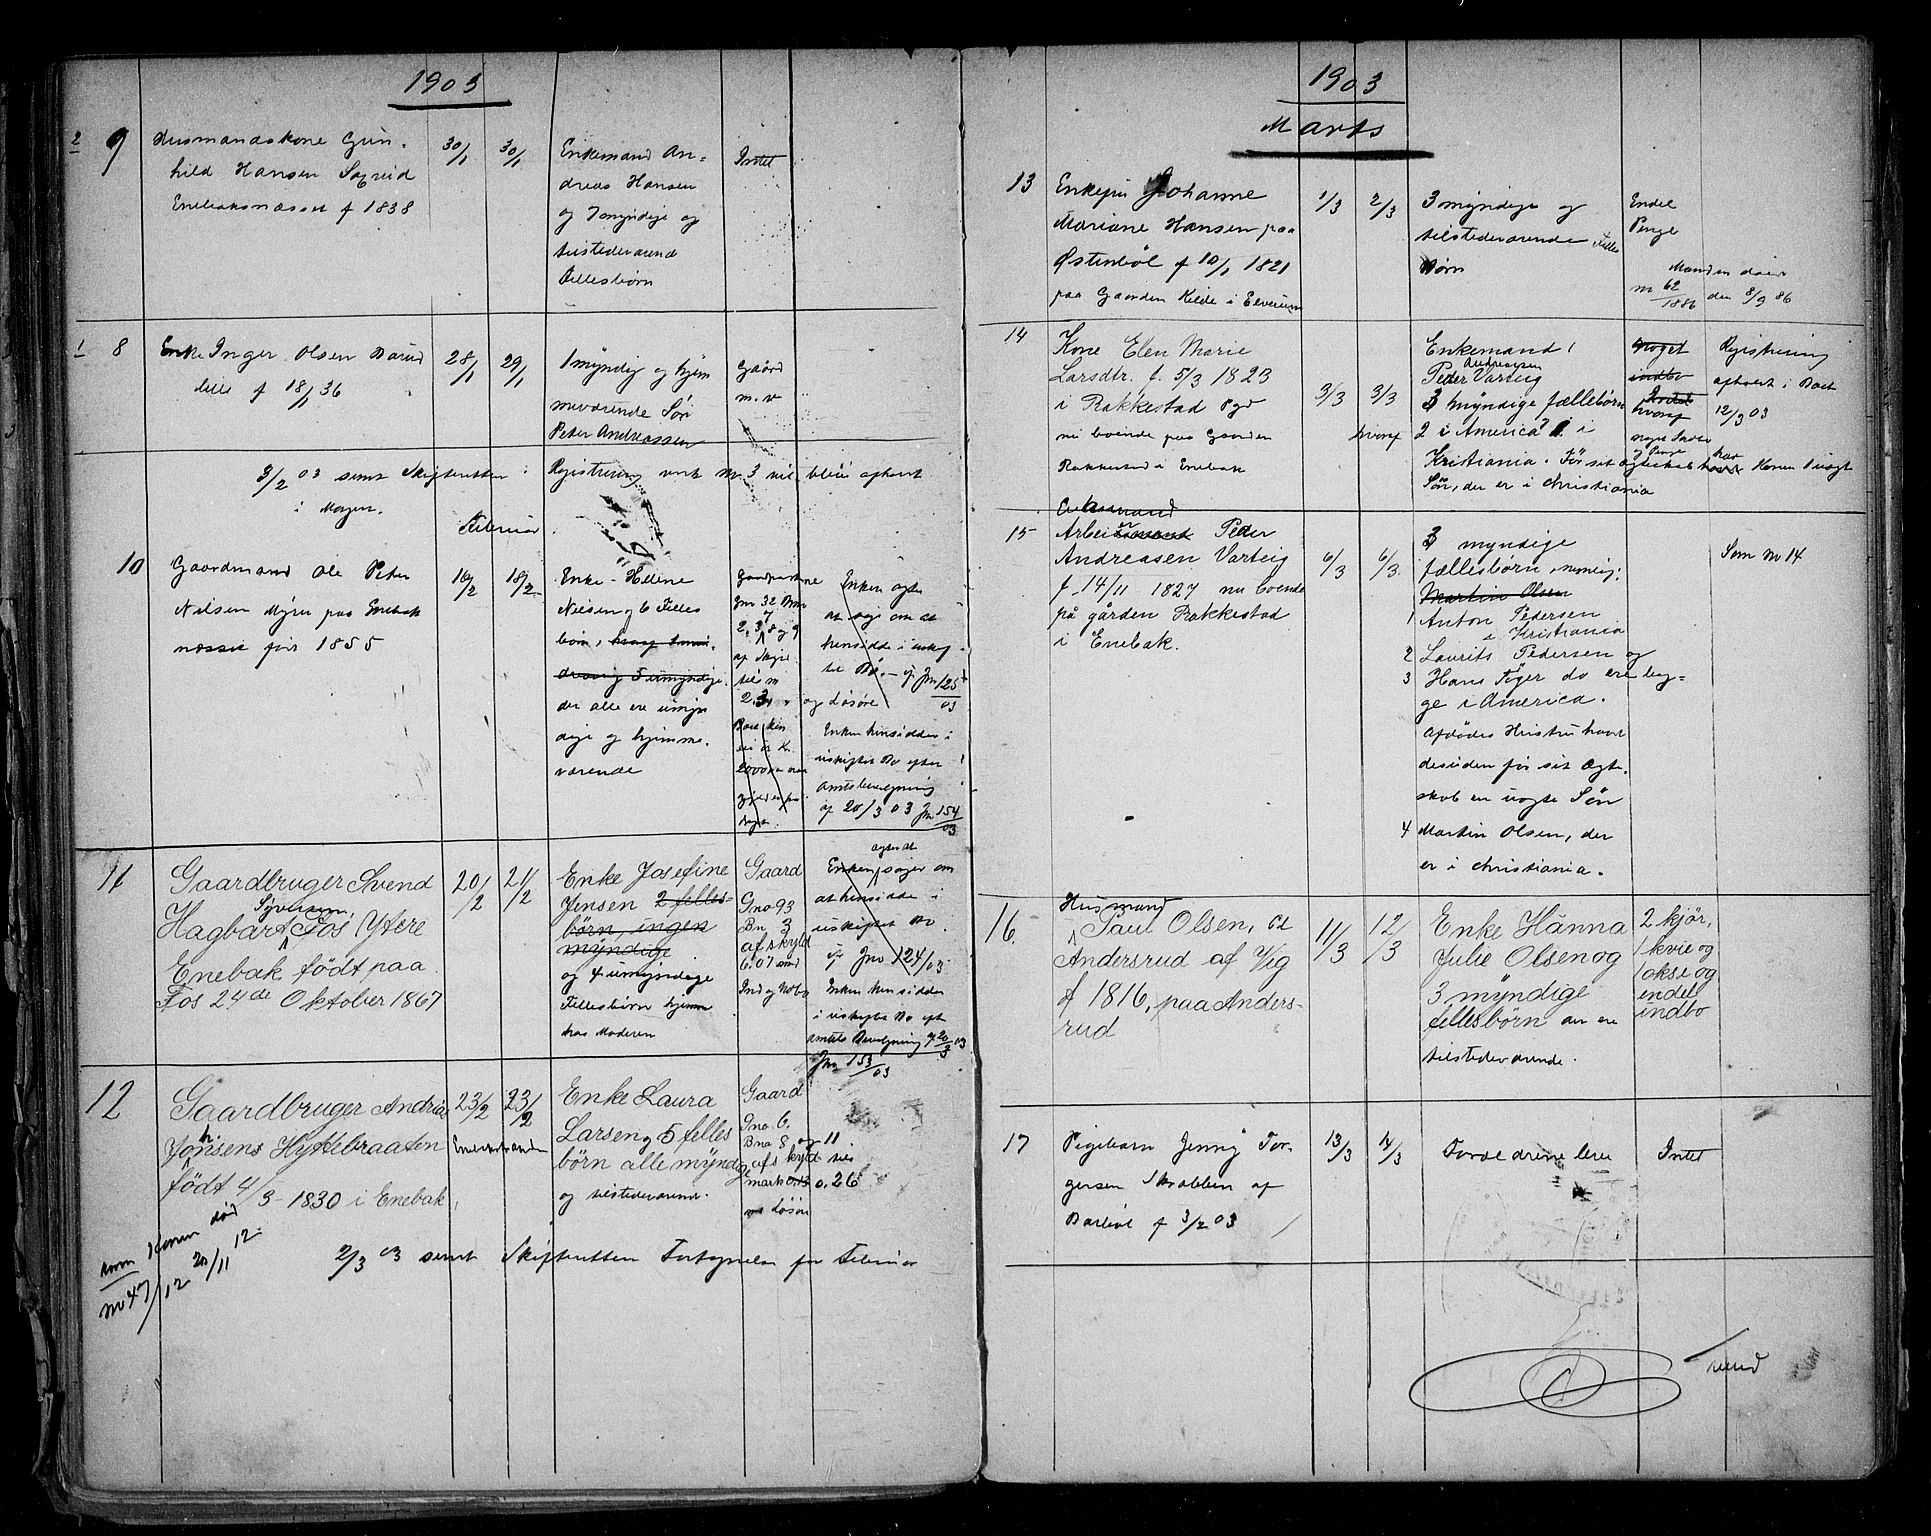 1903
2 9 Husmandskone Gun-
hild Hansen
f 1838
30/1 30/1
Enkemand An-
dreas Hansen
og 7 myndige og
tilstedeværende
Fellesbørn
Intet
1 8 Enke Inger Olsen Børud
f 18/1 36
28/1 29/1
1 myndig og hjem
meværende Søn
Peter Andreassen
Gaard
m.v
3/2 03 sendt Skifteretten
Registrering verk No 3 vil blive afholdt
i Morgen.
Februar
10 Gaardmand Ole Peter
Nilsen Myrer paa Enebak
næsset født 1855
16/2 18/2
Enke - Helene
Nielsen og 6 Felles
børn,
5 umyndige
der alle ere umyn
dige og hjemme.
værende
Gaardparterne
Gno 32 Bno
2, 3, 8 og 9
af Skyld
til m
2.31
Enken agter
at søge om at
hensidde i uskif-
tet Bo. - cfr Jno 125/03
og Løsøre
Enken hensidder i
uskiftet Bo efter
amtsbevilgning
af 20/3 03 Jno 154/03
11 Gaardbruger Svend
Syversen
Hagbart Fos, Ytre
Enebak født paa
Fos 24de Oktober 1867
20/2 21/2
Enke Josefine
Jensen 2 felles-
børn, ingen
myndige
og 4 umyndige
Fellesbørn hjemme
hos Moderen
Gaard
Gno 93
Bn 3
af skyld
6.07 samt
Indbo
agter at
Enken søger om
at hensidde i
uskiftet Bo
Jno 124/03
Enken hensidder
i uskiftet Bo eft
amtets Bevilgning af 20/3 03
Jno 153/03
12 Gaardbruger Andreas
Johnsens Hyttebraaten
født 4/3 - 1830 i Enebak
23/2 23/2
Enke Laura
Larsen og 5 felles
børn alle myndige
og tilstedeværende.
Gaard
Gno. 6.
Bno 8 og 11
af skyld tils
mark 0.26
og Løsøre
Konen død
20/11 12
No 47/12
2/3 03 sendt Skifteretten Fortegnelse for Februar
1903
Marts
13 Enkefru Johanne
Mariane Hansen paa
Østenbøl f 10/1 1821
paa Gaarden Kilde i Elverum
1/3 2/3
3 myndige og
tilstedeværende Felles
Børn
Endel
Penge
Manden døde
no 62/1886 den 8/9 86
14 Kone Elen Marie
Larsdtr. f. 5/3 1823
i Rakkestad Pgd
nu boende paa Gaarden
Rakkestad i Enebak
3/3 3/3
hvoraf
Enkemand
Andreasen
Peder Varteig
3 myndige fællebørn
2 i America 1 i
Kristiania. Før sit Ægteskab har Konen 1 uægt
Søn, der er i Christiania
noget
indbo
Registrering
afholdt i Boet
12/3 03
15 Enkemand
Arbeider Peder
Andreasen Varteig
f. 14/11 1827 nu boende
på gården Rakkestad
i Enebak.
6/3 6/3
3 myndige
fællesbørn nemlig:
Martin Olsen
1 Anton Pedersen
i Kristiania
2 Laurits Pedersen og
3 Hans Tøger do ere beg=
ge i America.
Afdødes Hustru havde
desuden før sit Ægte-
skab en uægte Søn
4 Martin Olsen, der
er i Christiania.
Som No 14
16. Husmand
Paul Olsen,
Andersrud af Vig
f 1816, paa Anders-
rud
11/3 12/3
Enke Hanna
Julie Olsen og
3 myndige
fellesbørn der ere
tilstedeværende.
2 kjør,
1 kvie og
1 okse og
endel
indbo
17 Pigebarn Jenny Tor-
gersen Skrabben af
Børtbøl f 3/2 03
13/3 14/3
Forældrene leve
Intet